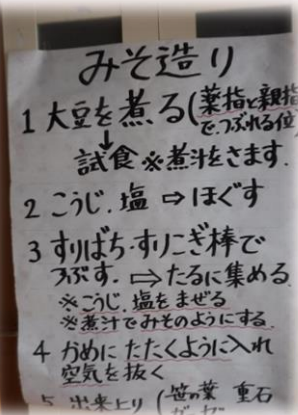 みそ造り
1 大豆を煮る(薬指と親指
でつぶれる位)
↓
試食 ※煮汁をさます.
2 こうじ.塩 ⇨ ほぐす
3 すりばち・すりこぎ棒で
つぶす. ⇨ たるに集める.
※こうじ.塩をまぜる
※煮汁でみそのようにする.
4 かめに たたくように入れ
空気を抜く
5 出来上り(笹の葉 重石